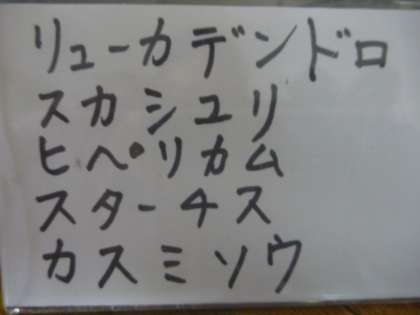 リューカデンドロ
スカシユリ
ヒペリカム
スターチス
カスミソウ